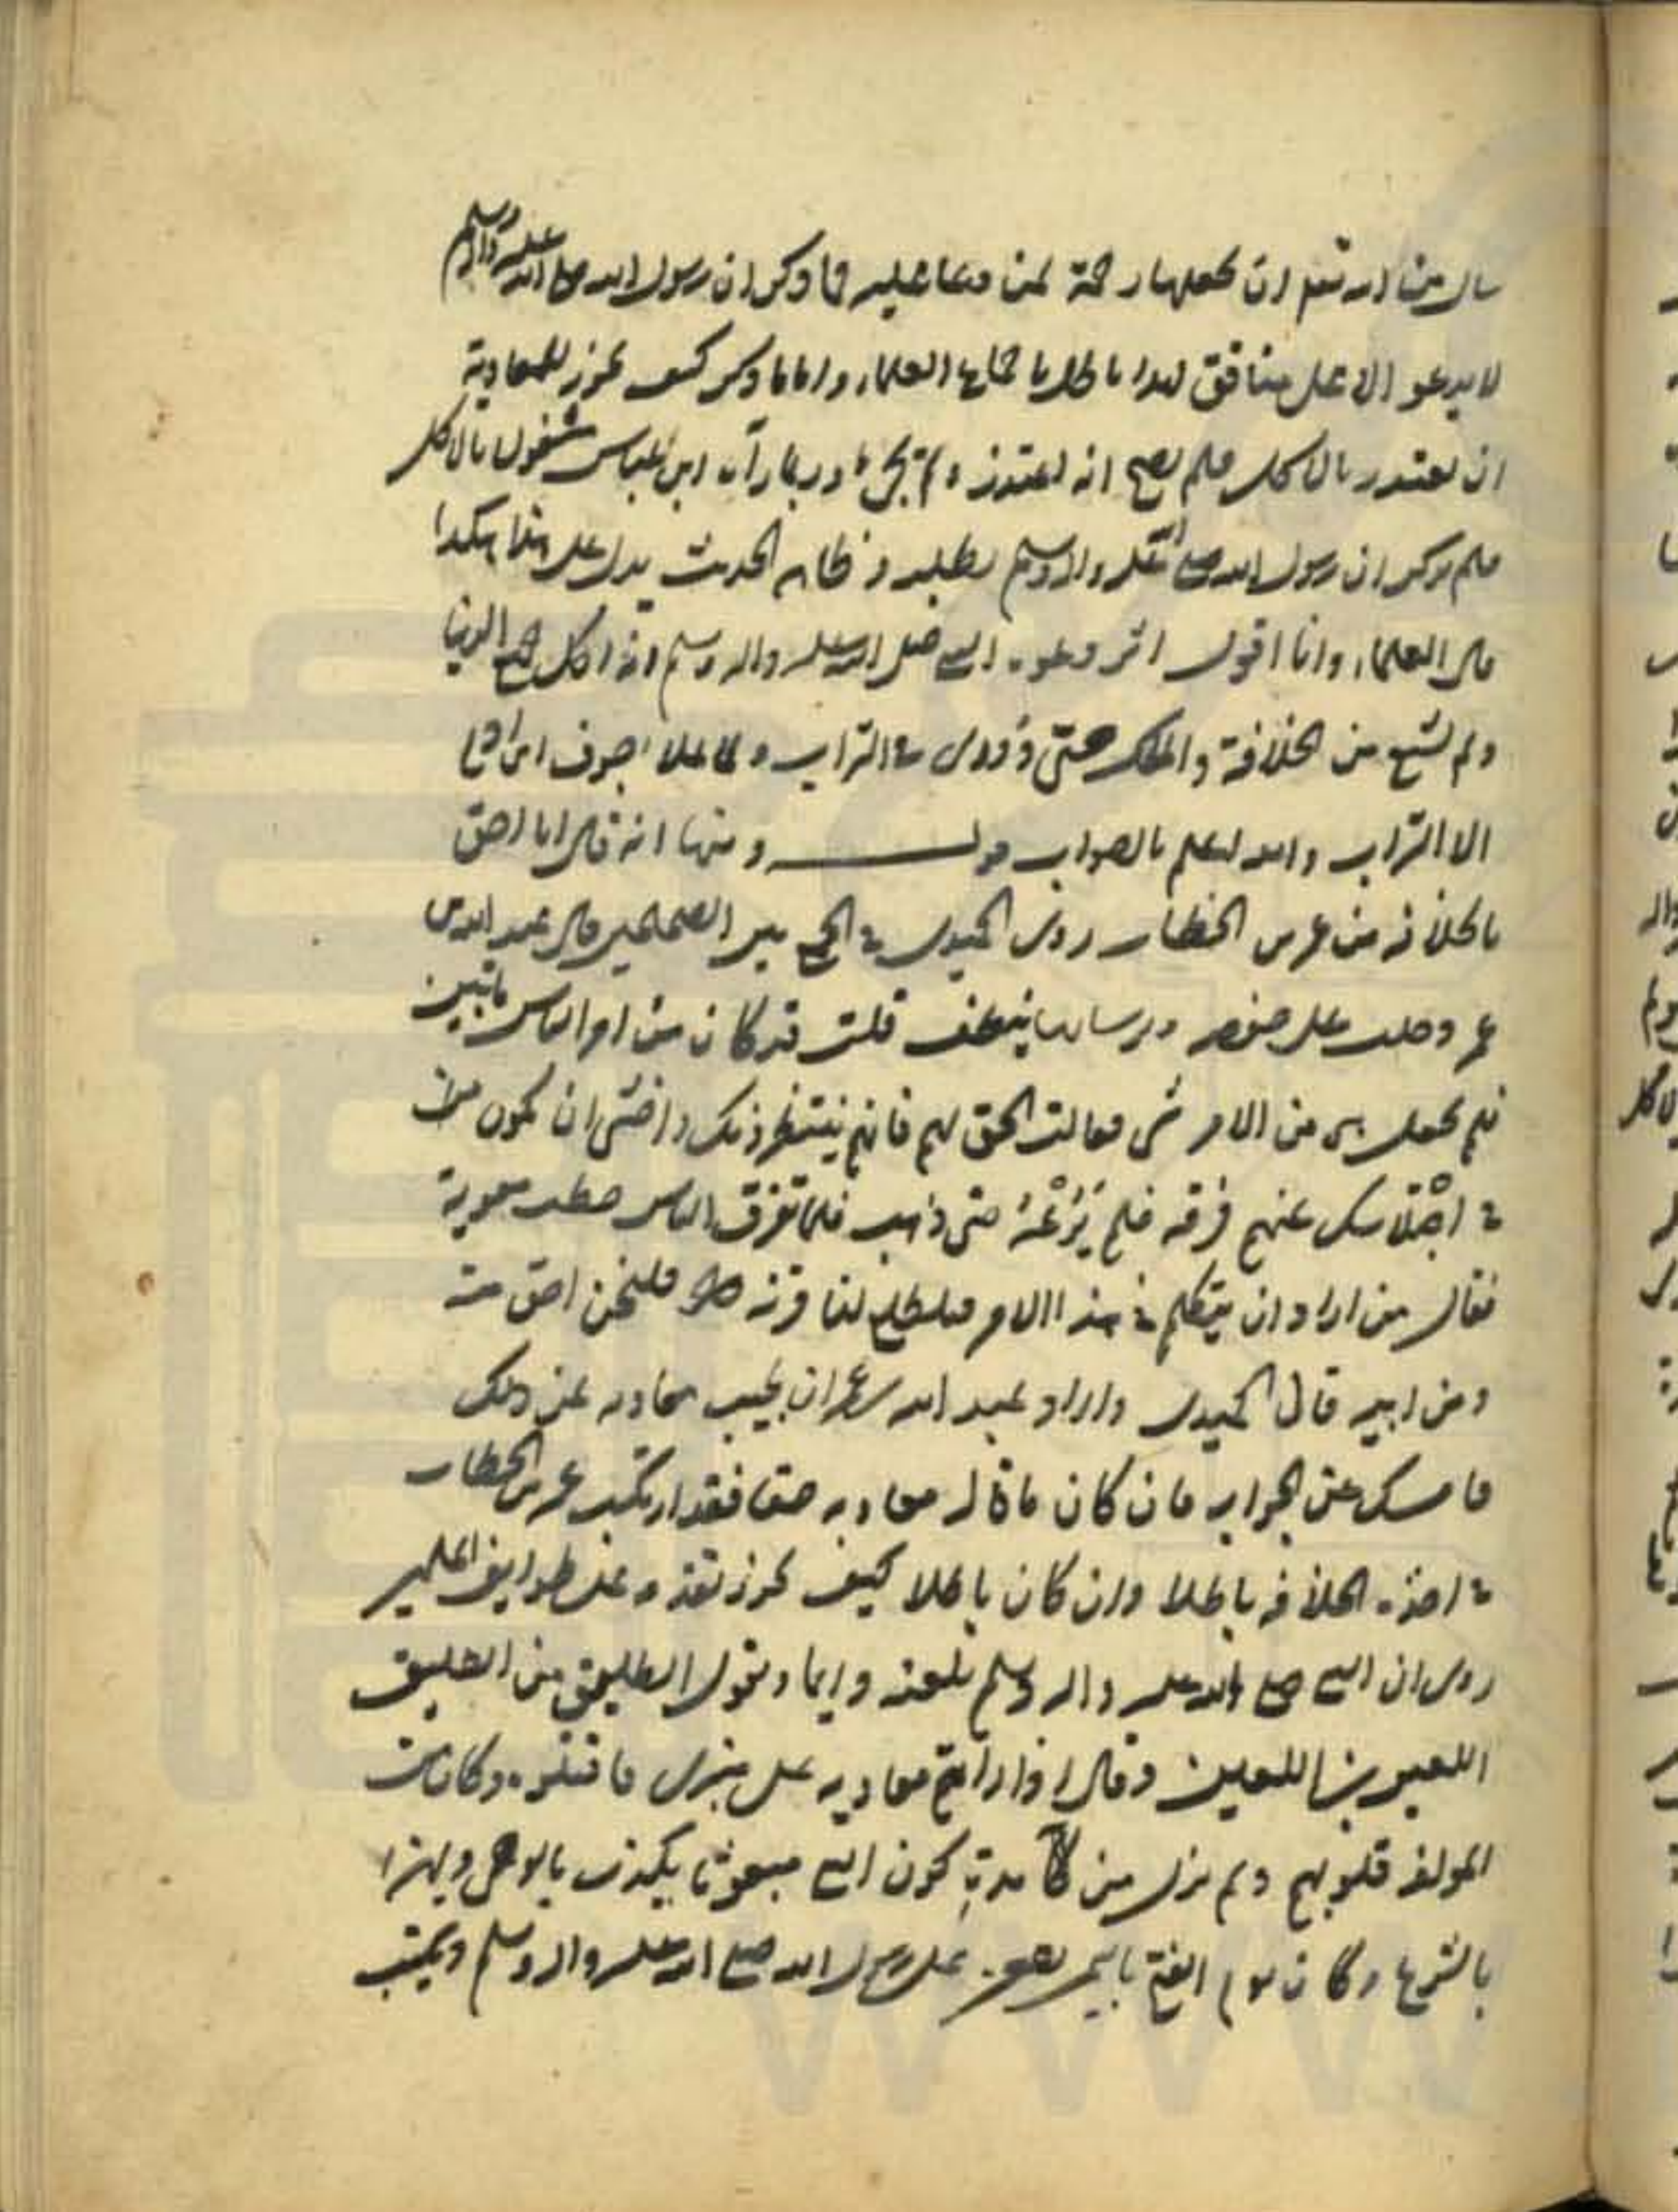 سال من الله تعالى ان يجعلها رحمة لمن دعا عليه فما ذكر ان رسول الله صلى الله عليه واله وسلم
لا يدعو الا على منافق لهذا باطل باجماع العلماء واما ما ذكر كيف يجوز لمعاوية
ان يعتذر بالاكل فلم يصح انه اعتذر ولم يجئ وربما رآه ابن عباس مشغولا بالاكل
فلم يذكر ان رسول الله صلى الله عليه واله وسلم يطلبه وظاهر الحديث يدل على هذا هكذا
قال العلماء وانا اقول اثر دعوة النبي صلى الله عليه واله وسلم انه اكل جميع الدنيا
ولم يشبع من الخلافة والملك حتى ووري في التراب ولا يملا جوف ابن ادم
الا التراب والله اعلم بالصواب قوله ومنها انه قال انا احق
بالخلافة من عمر بن الخطاب روى الحميدي في الجمع بين الصحيحين قال عبد الله بن
عمر دخلت على حفصة ونوساتها ينطف قلت قد كان من امر الناس ما تبين
فلم يجعل لي من الامر شي فقالت الحق بهم فانهم ينتظرونك واخشى ان يكون منك
في احتباسك عنهم فرقة فلم تدعه حتى ذهب فلما تفرق الناس خطب معوية
فقال من اراد ان يتكلم في هذا الامر فليطلع لنا قرنه فلنحن احق منه
ومن ابيه قال الحميدي واراد عبد الله بن عمر ان يجيب معاوية عن ذلك
فامسك عن الجواب فان كان ما قاله معاوية حقا فقد ارتكب عمر بن الخطاب
في اخذه الخلافة باطلا وان كان باطلا كيف يجوز تقدمه على طوايف المسلمين
روى ان النبي صلى الله عليه واله وسلم يلعنه دايما ويقول الطليق بن الطليق
اللعين بن اللعين وقال اذا رايتم معاوية على منبري فاقتلوه وكان من
المولفة قلوبهم ولم يزل مشركا مدة كون النبي مبعوثا يكذب بالوحي ويهزا
بالشرع وكان يوم الفتح باليمن يطعن على رسول الله صلى الله عليه واله وسلم ويكتب